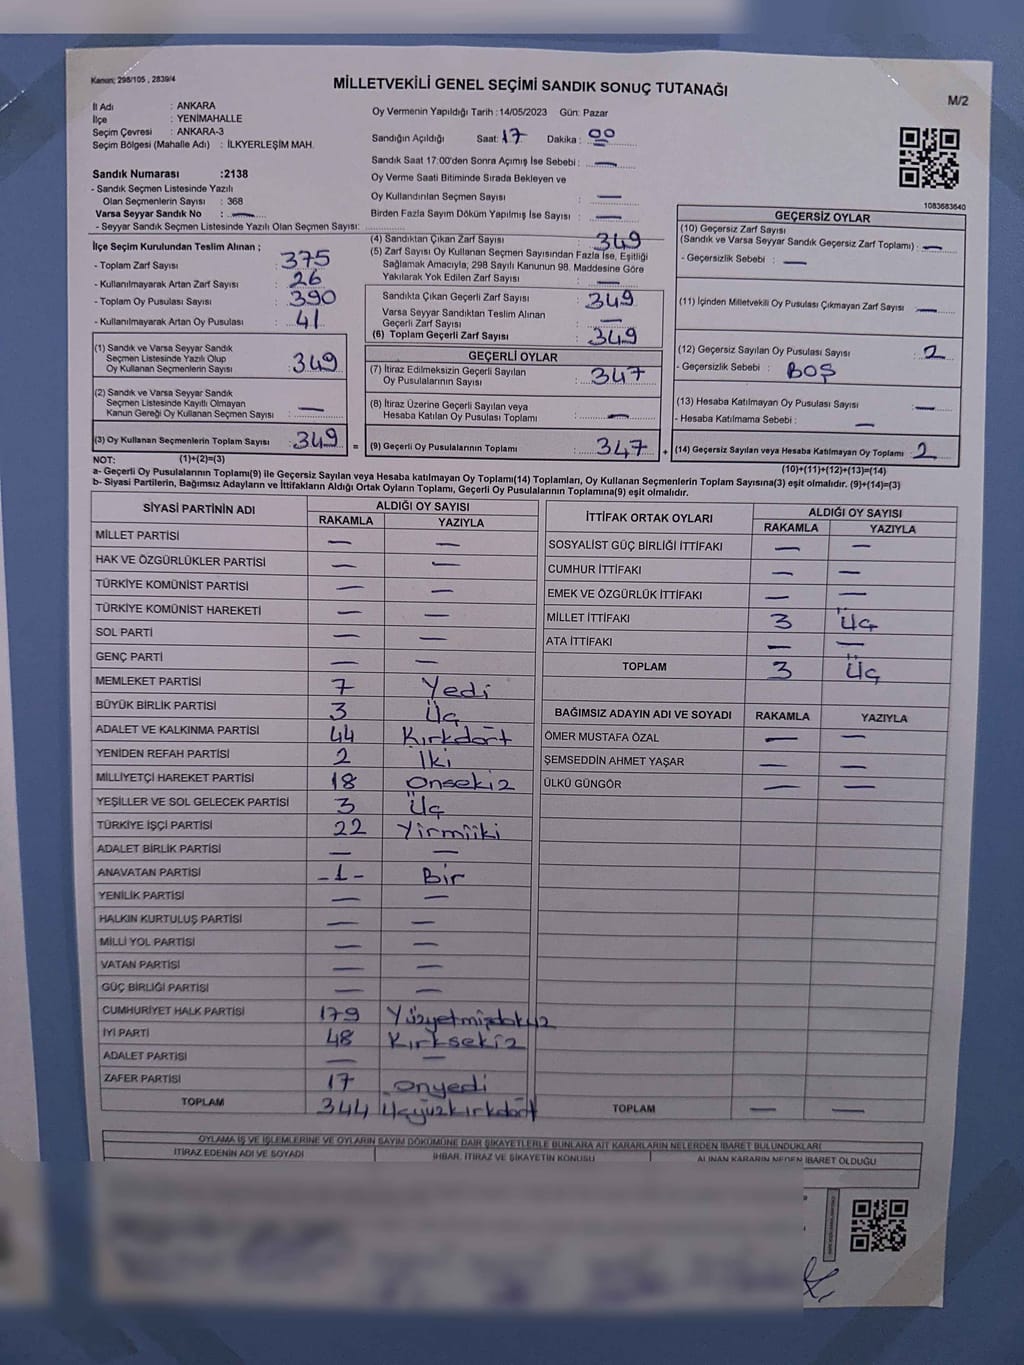 Kanun; 298/105 , 2839/4
MİLLETVEKİLİ GENEL SEÇİMİ SANDIK SONUÇ TUTANAĞI
M/2
İl Adı : ANKARA
İlçe : YENİMAHALLE
Seçim Çevresi : ANKARA-3
Seçim Bölgesi (Mahalle Adı) : İLKYERLEŞİM MAH.
Oy Vermenin Yapıldığı Tarih : 14/05/2023 Gün: Pazar
Sandığın Açıldığı Saat: 17 Dakika : 00
Sandık Saat 17:00'den Sonra Açımış İse Sebebi : —
Oy Verme Saati Bitiminde Sırada Bekleyen ve
Oy Kullandırılan Seçmen Sayısı : —
Birden Fazla Sayım Döküm Yapılmış İse Sayısı : —
Sandık Numarası :2138
- Sandık Seçmen Listesinde Yazılı
Olan Seçmenlerin Sayısı : 368
Varsa Seyyar Sandık No : —
- Seyyar Sandık Seçmen Listesinde Yazılı Olan Seçmen Sayısı:
1083683640
İlçe Seçim Kurulundan Teslim Alınan ;
- Toplam Zarf Sayısı : 375
- Kullanılmayarak Artan Zarf Sayısı : 26
- Toplam Oy Pusulası Sayısı : 390
- Kullanılmayarak Artan Oy Pusulası : 41
(1) Sandık ve Varsa Seyyar Sandık
Seçmen Listesinde Yazılı Olup
Oy Kullanan Seçmenlerin Sayısı : 349
(2) Sandık ve Varsa Seyyar Sandık
Seçmen Listesinde Kayıtlı Olmayan
Kanun Gereği Oy Kullanan Seçmen Sayısı : —
(3) Oy Kullanan Seçmenlerin Toplam Sayısı : 349 =
(4) Sandıktan Çıkan Zarf Sayısı : 349
(5) Zarf Sayısı Oy Kullanan Seçmen Sayısından Fazla İse, Eşitliği
Sağlamak Amacıyla, 298 Sayılı Kanunun 98. Maddesine Göre
Yakılarak Yok Edilen Zarf Sayısı : —
Sandıkta Çıkan Geçerli Zarf Sayısı : 349
Varsa Seyyar Sandıktan Teslim Alınan
Geçerli Zarf Sayısı : —
(6) Toplam Geçerli Zarf Sayısı : 349
GEÇERLİ OYLAR
(7) İtiraz Edilmeksizin Geçerli Sayılan
Oy Pusulalarının Sayısı : 347
(8) İtiraz Üzerine Geçerli Sayılan veya
Hesaba Katılan Oy Pusulası Toplamı : —
(9) Geçerli Oy Pusulalarının Toplamı : 347 +
GEÇERSİZ OYLAR
(10) Geçersiz Zarf Sayısı
(Sandık ve Varsa Seyyar Sandık Geçersiz Zarf Toplamı) : —
- Geçersizlik Sebebi : —
(11) İçinden Milletvekili Oy Pusulası Çıkmayan Zarf Sayısı : —
(12) Geçersiz Sayılan Oy Pusulası Sayısı : 2
- Geçersizlik Sebebi : BOŞ
(13) Hesaba Katılmayan Oy Pusulası Sayısı : —
- Hesaba Katılmama Sebebi : —
(14) Geçersiz Sayılan veya Hesaba Katılmayan Oy Toplamı : 2
NOT: (1)+(2)=(3) (10)+(11)+(12)+(13)=(14)
a- Geçerli Oy Pusulalarının Toplamı(9) ile Geçersiz Sayılan veya Hesaba katılmayan Oy Toplamı(14) Toplamları, Oy Kullanan Seçmenlerin Toplam Sayısına(3) eşit olmalıdır. (9)+(14)=(3)
b- Siyasi Partilerin, Bağımsız Adayların ve İttifakların Aldığı Ortak Oyların Toplamı, Geçerli Oy Pusulalarının Toplamına(9) eşit olmalıdır.
SİYASİ PARTİNİN ADI ALDIĞI OY SAYISI
RAKAMLA YAZIYLA
MİLLET PARTİSİ — —
HAK VE ÖZGÜRLÜKLER PARTİSİ — —
TÜRKİYE KOMÜNİST PARTİSİ — —
TÜRKİYE KOMÜNİST HAREKETİ — —
SOL PARTİ — —
GENÇ PARTİ — —
MEMLEKET PARTİSİ 7 Yedi
BÜYÜK BİRLİK PARTİSİ 3 Üç
ADALET VE KALKINMA PARTİSİ 44 Kırkdört
YENİDEN REFAH PARTİSİ 2 İki
MİLLİYETÇİ HAREKET PARTİSİ 18 Onsekiz
YEŞİLLER VE SOL GELECEK PARTİSİ 3 Üç
TÜRKİYE İŞÇİ PARTİSİ 22 Yirmiiki
ADALET BİRLİK PARTİSİ — —
ANAVATAN PARTİSİ -1- Bir
YENİLİK PARTİSİ — —
HALKIN KURTULUŞ PARTİSİ — —
MİLLİ YOL PARTİSİ — —
VATAN PARTİSİ — —
GÜÇ BİRLİĞİ PARTİSİ — —
CUMHURİYET HALK PARTİSİ 179 Yüzyetmişdokuz
İYİ PARTİ 48 Kırksekiz
ADALET PARTİSİ — —
ZAFER PARTİSİ 17 Onyedi
TOPLAM 344 Üçyüzkırkdört
İTTİFAK ORTAK OYLARI ALDIĞI OY SAYISI
RAKAMLA YAZIYLA
SOSYALİST GÜÇ BİRLİĞİ İTTİFAKI — —
CUMHUR İTTİFAKI — —
EMEK VE ÖZGÜRLÜK İTTİFAKI — —
MİLLET İTTİFAKI 3 Üç
ATA İTTİFAKI — —
TOPLAM 3 Üç
BAĞIMSIZ ADAYIN ADI VE SOYADI RAKAMLA YAZIYLA
ÖMER MUSTAFA ÖZAL — —
ŞEMSEDDİN AHMET YAŞAR — —
ÜLKÜ GÜNGÖR — —
TOPLAM — —
OYLAMA İŞ VE İŞLEMLERİNE VE OYLARIN SAYIM DÖKÜMÜNE DAİR ŞİKAYETLERLE BUNLARA AİT KARARLARIN NELERDEN İBARET BULUNDUKLARI
İTİRAZ EDENİN ADI VE SOYADI İHBAR, İTİRAZ VE ŞİKAYETİN KONUSU ALINAN KARARIN NEDEN İBARET OLDUĞU